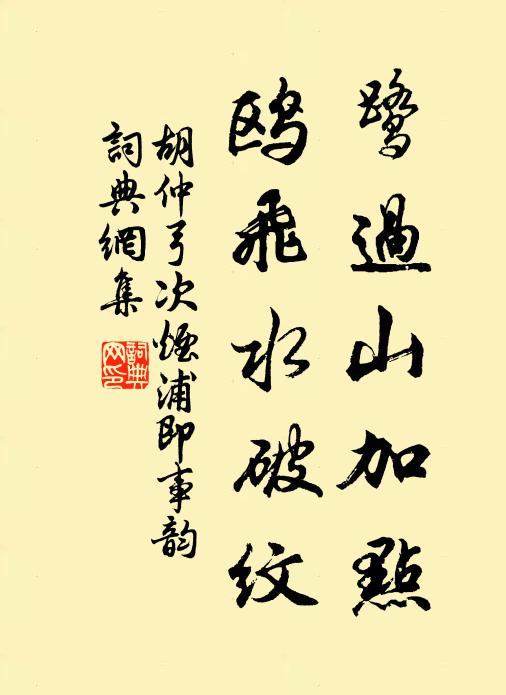 鷺過山加點
鸥飛水破紋
胡仲弓次煙浦即事韵
詞典網集
詞典網印